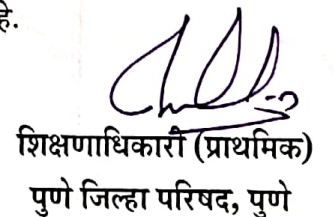 हे.
शिक्षणाधिकारी (प्राथमिक)
पुणे जिल्हा परिषद, पुणे